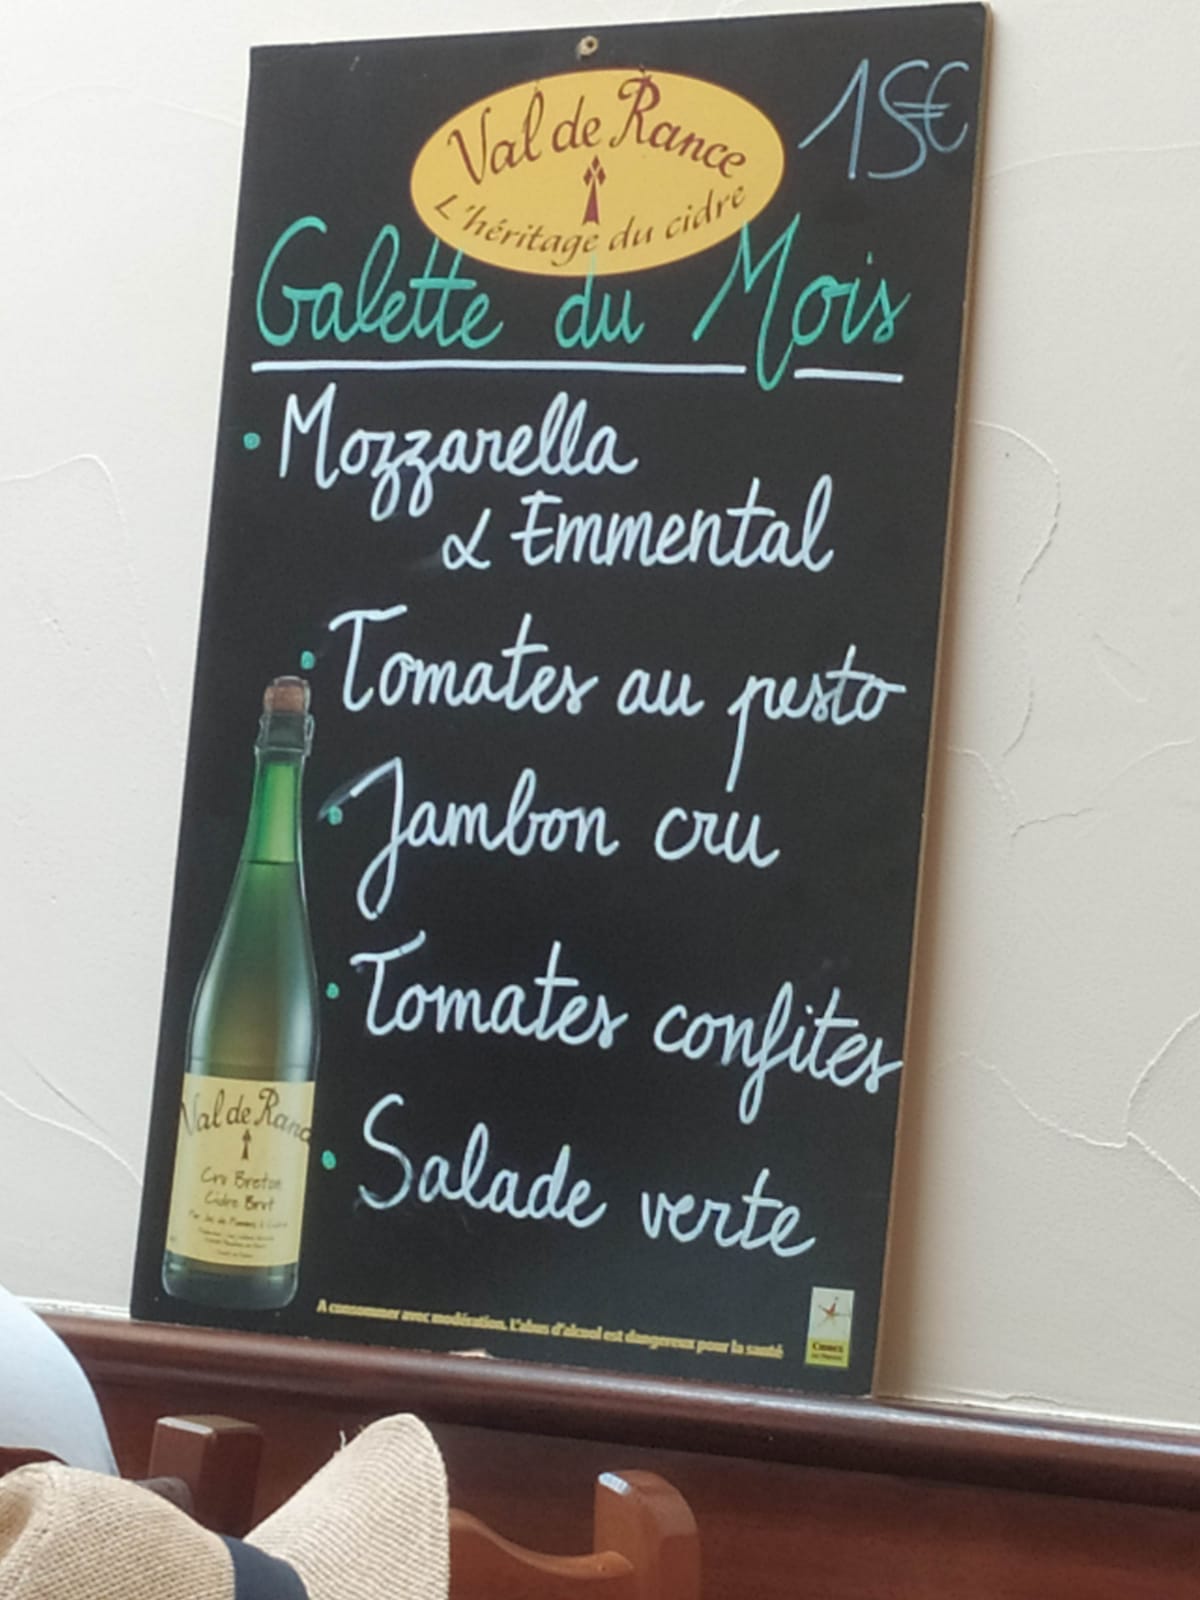 15€
Val de Rance
L'héritage du cidre
Galette du Mois
• Mozzarella
& Emmental
• Tomates au pesto
• Jambon cru
• Tomates confites
• Salade verte
Val de Ranc
Cru Breton
Cidre Brut
A consommer avec modération. L'abus d'alcool est dangereux pour la santé